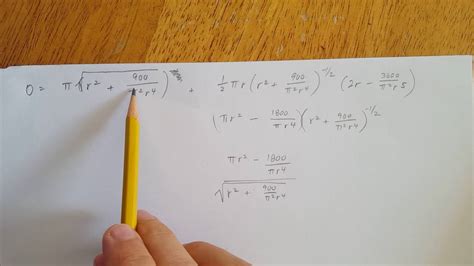 0 = π√(r² + 900/π²r⁴) + 1/2 πr (r² + 900/π²r⁴)^(-1/2) (2r - 3600/π²r⁵)
(πr² - 1800/πr⁴)(r² + 900/π²r⁴)^(-1/2)
πr² - 1800/πr⁴
√(r² + 900/π²r⁴)